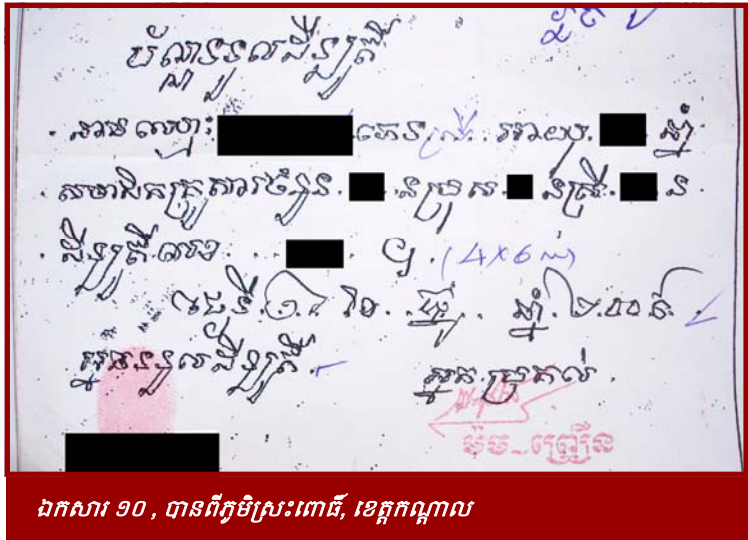 ប័ណ្ណទទួលដីឡូត៍
នាម ឈ្មោះ ភេទ ស្រី អាយុ ឆ្នាំ
សមាជិកគ្រួសារចំនួន ន ប្រុស ន ស្រី ន
ដីឡូត៍លេខ (4x6 ម)
ថ្ងៃទី ខែ ឆ្នាំ
អ្នកទទួលដីឡូត៍ អ្នកប្រគល់
ម៉ម ញឿន
ឯកសារ ១០ , បានពីភូមិស្រះពោធិ៍, ខេត្តកណ្តាល